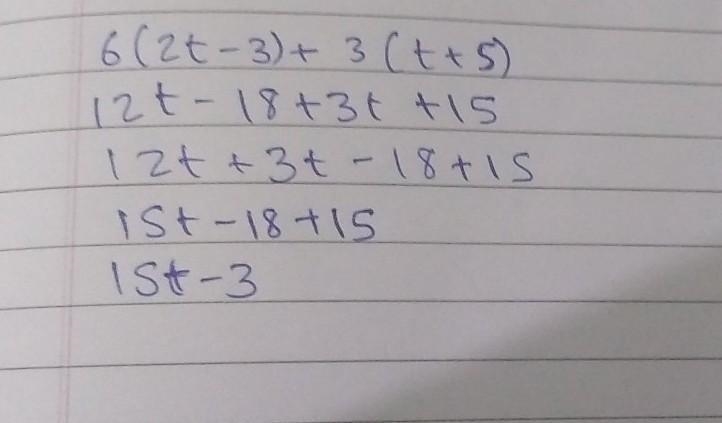 6(2t-3)+ 3(t+5)
12t-18+3t+15
12t+3t-18+15
15t-18+15
15t-3